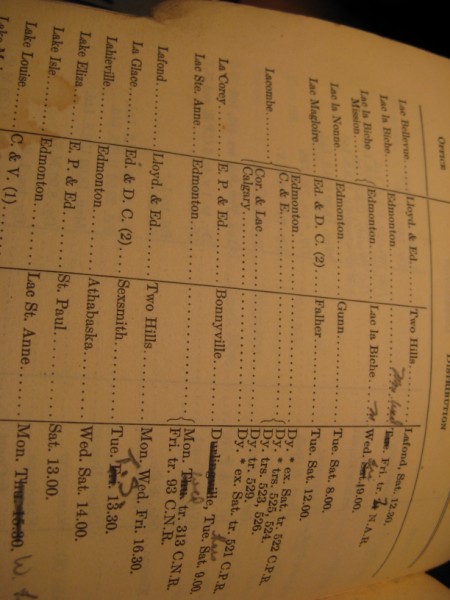 OFFICE DISTRIBUTION
Lac Bellevue...... Lloyd. & Ed...... Two Hills...... Lafond, Sat. 12.30.
Lac la Biche...... Edmonton...... Fri. tr. N.A.R.
Lac la Biche Mission...... Edmonton...... Lac la Biche... Wed. 19.00.
Lac la Nonne...... Edmonton...... Gunn...... Tue. Sat. 8.00.
Lac Magloire...... Ed. & D. C. (2)... Falher...... Tue. Sat. 12.00.
Lacombe...... Edmonton...... Dy. * ex. Sat. tr. 522 C.P.R.
C. & E...... Dy. * trs. 525, 524.
Cor. & Lac...... Dy. trs. 523, 526.
Calgary...... Dy. tr. 529.
Dy. * ex. Sat. tr. 521 C.P.R.
La Corey...... E. P. & Ed...... Bonnyville...... Tue. Sat. 9.00.
Lac Ste. Anne... Edmonton...... Mon. tr. 313 C.N.R.
Fri. tr. 93 C.N.R.
Lafond...... Lloyd. & Ed...... Two Hills...... Mon. Wed. Fri. 16.30.
La Glace...... Ed. & D. C. (2)... Sexsmith...... Tue. 13.30. T.S.
Lahieville...... Edmonton...... Athabaska...... Wed. Sat. 14.00.
Lake Eliza...... E. P. & Ed...... St. Paul...... Sat. 13.00.
Lake Isle...... Edmonton...... Lac St. Anne... Mon. W.
Lake Louise... C. & V. (1)......